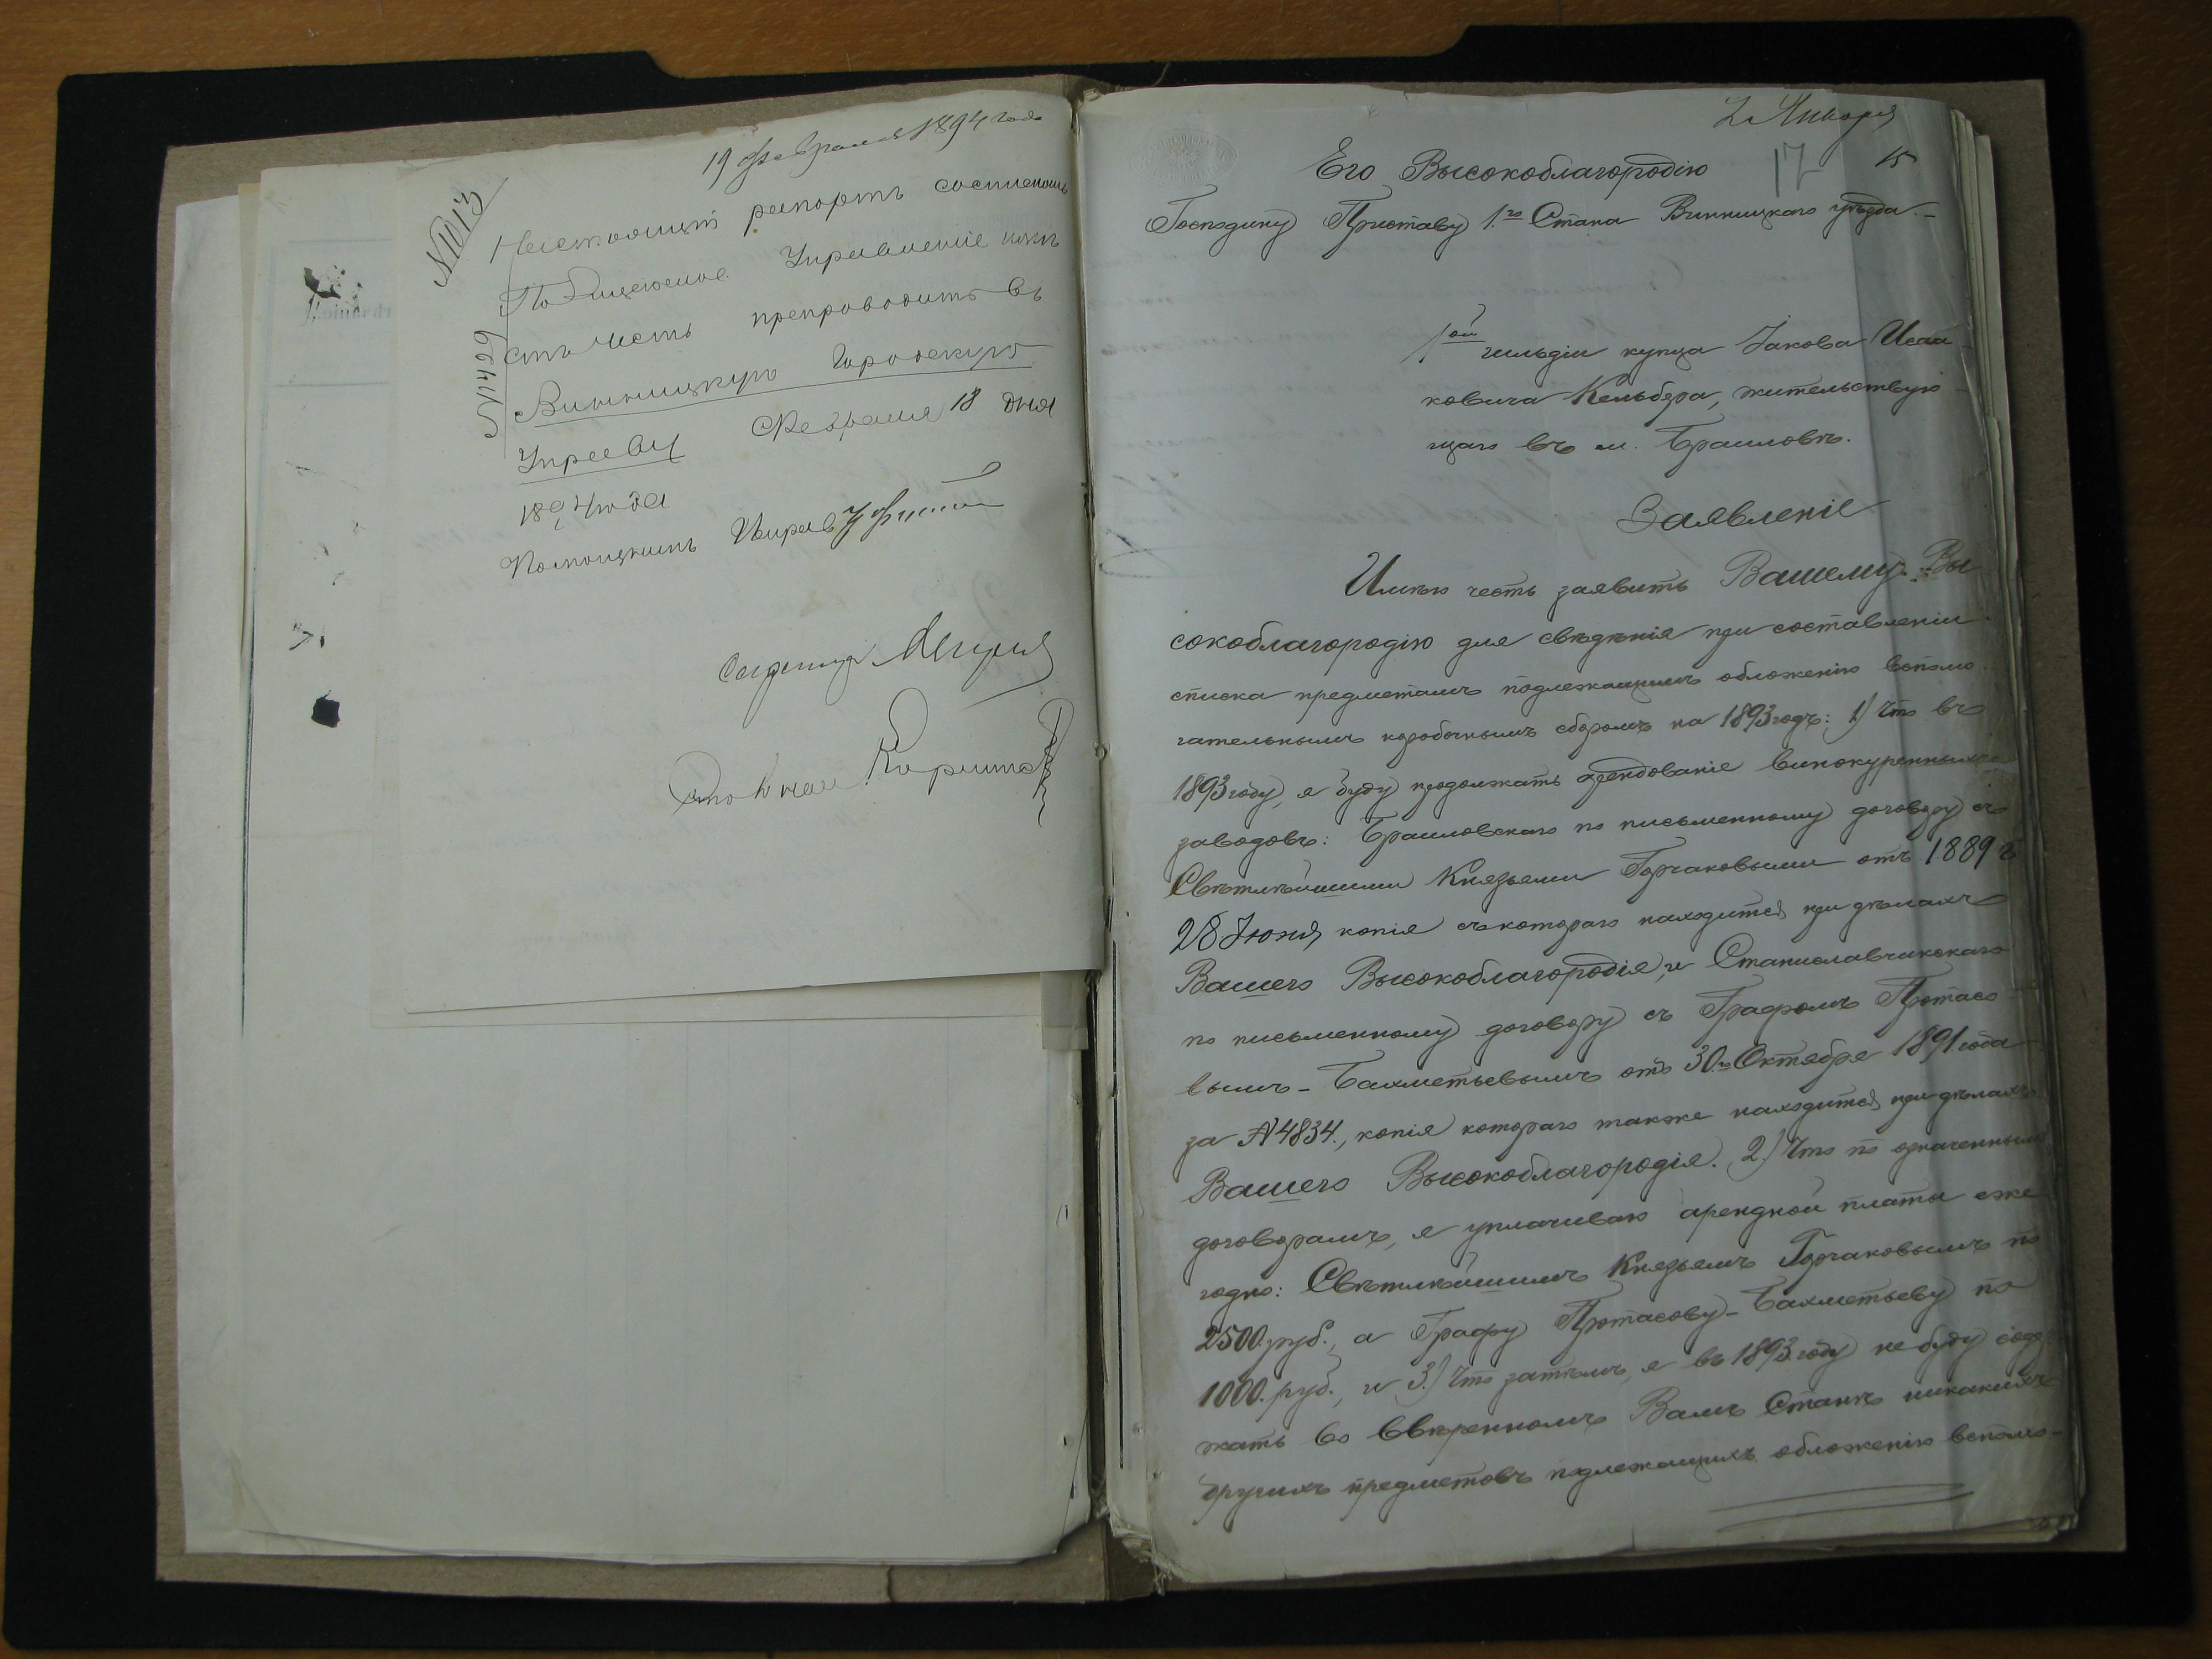 19 февраля 1894 года
№ 1013
Настоящій рапортъ
Полицейское Управленіе имѣ
етъ честь препроводить въ
Винницкую Городскую
Управу Февраля 18 дня
1894 года
№ 1429
Помощникъ Исправ
Секретарь
2 Января
17 15
Его Высокоблагородію
Господину Приставу 1го Стана Винницкаго уѣзда.-
1ой гильдіи купца Іакова Исаа-
ковича Кельбера, жительствую-
щаго въ м. Браиловѣ.
Заявленіе
Имѣю честь заявить Вашему Вы
сокоблагородію для свѣдѣнія при составленіи
списка предметамъ подлежащимъ обложенію вспомо
гательнымъ коробочнымъ сборомъ на 1893 годъ: 1) Что въ
1893 году, я буду продолжать арендованіе винокуренныхъ
заводовъ: Браиловскаго по письменному договору съ
Свѣтлѣйшими Князьями Горчаковыми отъ 1889 г.
28 Іюня, копія съ котораго находится при дѣлахъ
Вашего Высокоблагородія, и Станиславчикскаго
по письменному договору съ Графомъ Протасо-
вымъ-Бахметьевымъ отъ 30го Октября 1891 года
за № 4834., копія котораго также находится при дѣлахъ
Вашего Высокоблагородія. 2.) Что по означеннымъ
договорамъ, я уплачиваю арендной платы еже
годно: Свѣтлѣйшимъ Князьямъ Горчаковымъ по
2500 руб., а Графу Протасову-Бахметьеву по
1000. руб., и 3.) Что затѣмъ, я въ 1893 году не буду содер
жать во ввѣренномъ Вамъ Станѣ никакихъ
другихъ предметовъ подлежащихъ обложенію вспомо-